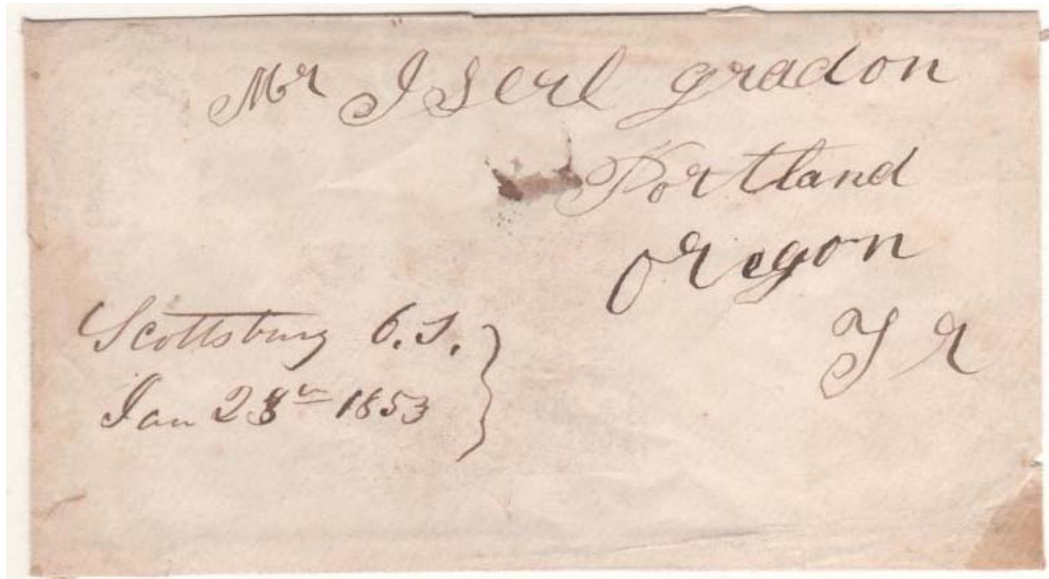 Mr I Serl gradon
Portland
Oregon
T R
Scottsburg O.T.
Jan 28th 1853